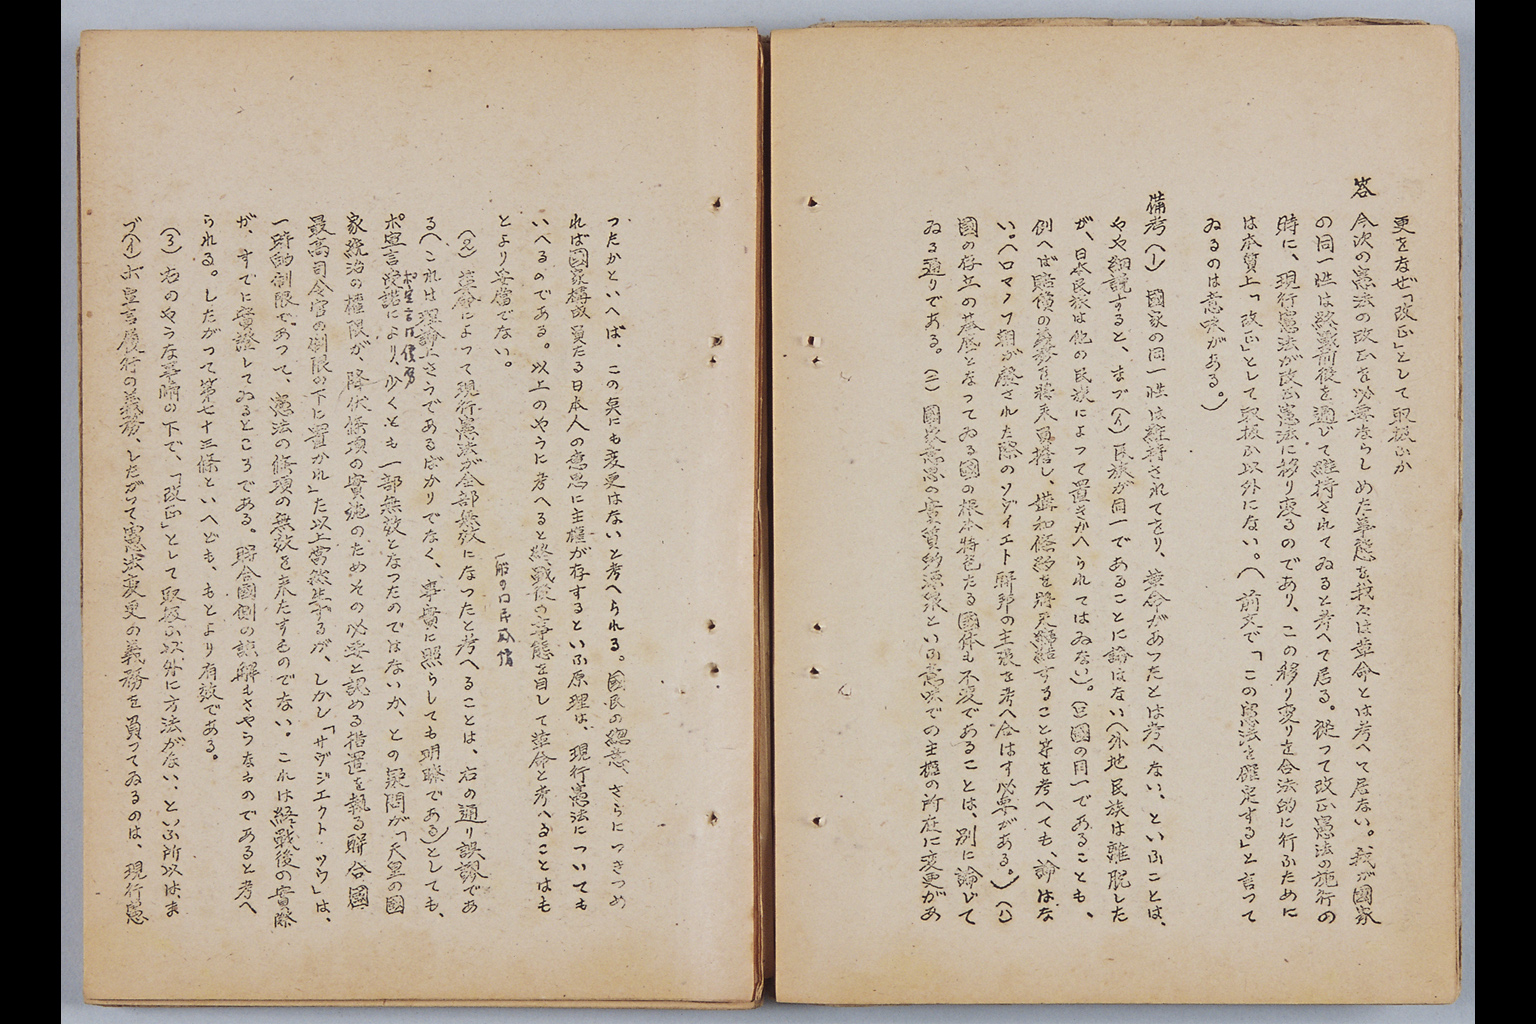 更をなぜ「改正」として取扱ふか
答 今次の憲法の改正を必要ならしめた事態を我々は革命とは考へて居ない。我が國家
の同一性は終戰前後を通じて維持されてゐると考へて居る。從つて改正憲法の施行の
時に、現行憲法が改正憲法に移り変るのであり、この移り変りを合法的に行ふために
は本質上「改正」として取扱ふ以外にない。(前文で「この憲法を確定する」と言つて
ゐるのは意味がある。)
備考(一) 國家の同一性は維持されてをり、革命があつたとは考へない、といふことは、
やや細説すると、まづ(イ)民族が同一であることに論はない(外地民族は離脱した
が、日本民族は他の民族によつて置きかへられてはゐない)。(ロ)國の同一であることも、
例へば賠償の義務を將来負擔し、媾和條約を將来締結すること等を考へても、論はな
い。(ロマノフ朝が廢された際のソヴィエト聨邦の主張を考へ合はす必要がある。)(ハ)
國の存立の基底となつてゐる國の根本特色たる國体も不変であることは、別に論じて
ゐる通りである。(ニ)國家意思の實質的源泉といふ意味での主權の所在に変更があ
つたかといへば、この矣にも変更はないと考へられる。國民の總意、さらにつきつめ
れば國家構成員たる日本人の意思に主權が存するといふ原理は、現行憲法についても
いへるのである。以上のやうに考へると終戰後の事態を目して革命と考へることはも
とより妥當でない。
(2) 革命によつて現行憲法が全部無效になつたと考へることは、右の通り誤謬であ
る(これは理論上さうであるばかりでなく、事實に照らしても明瞭である)としても、
ポ宣言受諾により、少くとも一部無效となつたのではないか、との疑問が「天皇の國
家統治の權限が、降伏條項の實施のためその必要と認める措置を執る聨合國
最高司令官の制限の下に置かれ」た以上當然生ずるが、しかし「サヴジエクト ツウ」は、
一時的制限であつて、憲法の條項の無效を来たすものでない。これは終戰後の實際
が、すでに實證してゐるところである。聨合國側の誤解もさやうなものであると考へ
られる。したがつて第七十三條といへども、もとより有效である。
(3) 右のやうな事情の下で、「改正」として取扱ふ以外に方法がない、といふ所以はま
づ(イ)ポ宣言履行の義務、したがつて憲法変更の義務を負つてゐるのは、現行憲